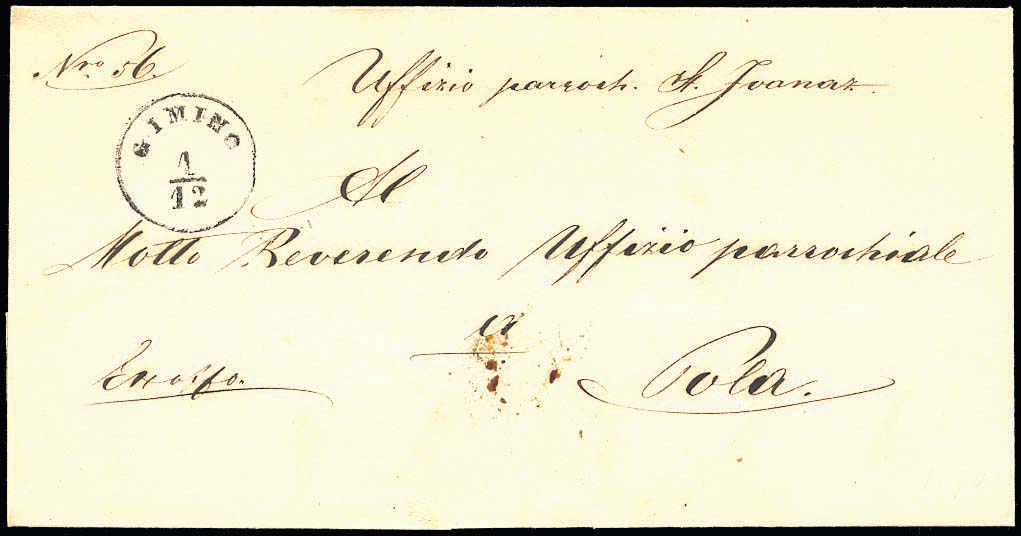 Nro. 56.
Uffizio parroch. St. Ivanaz.
GIMINO
1
12
Al
Molto Reverendo Uffizio parrochiale
a
Pola.